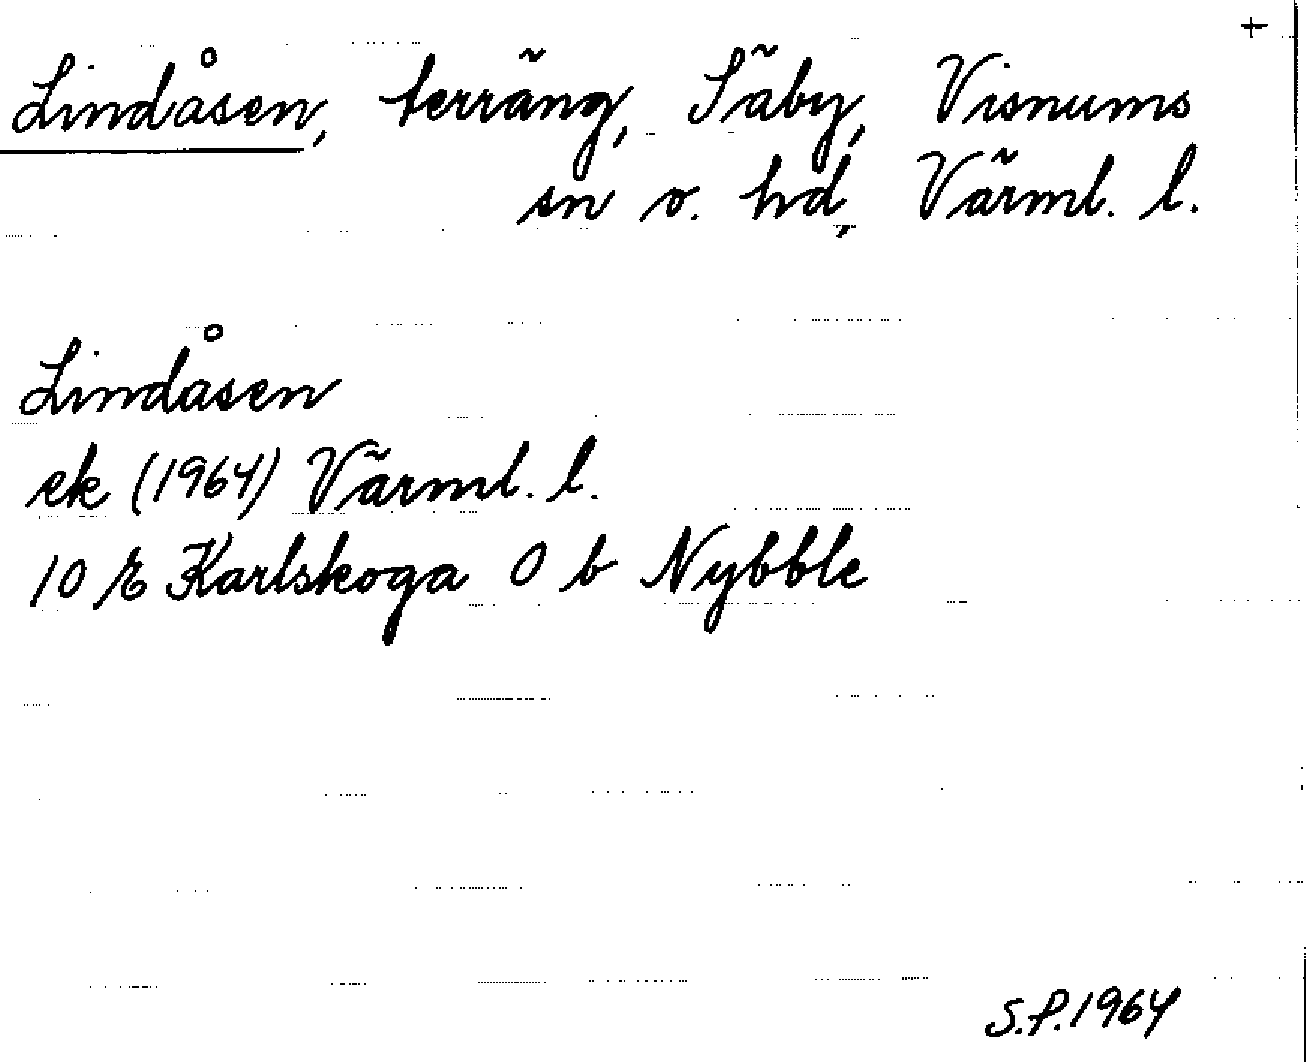 +
Lindåsen, terräng, Säby, Visnums
sn o. hd, Värml. l.
Lindåsen
ek (1964) Värml. l.
10 E Karlskoga 0 b Nybble
S.P. 1964